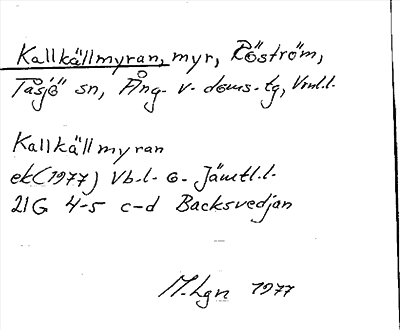 Kallkällmyran, myr, Röström,
Tåsjö sn, Ång. v. doms.-tg, Vnl.l.
Kallkällmyran
ek(1977) Vb.l. o. Jämtl.l.
21G 4-5 c-d Backsvedjan
M.Lgn 1977